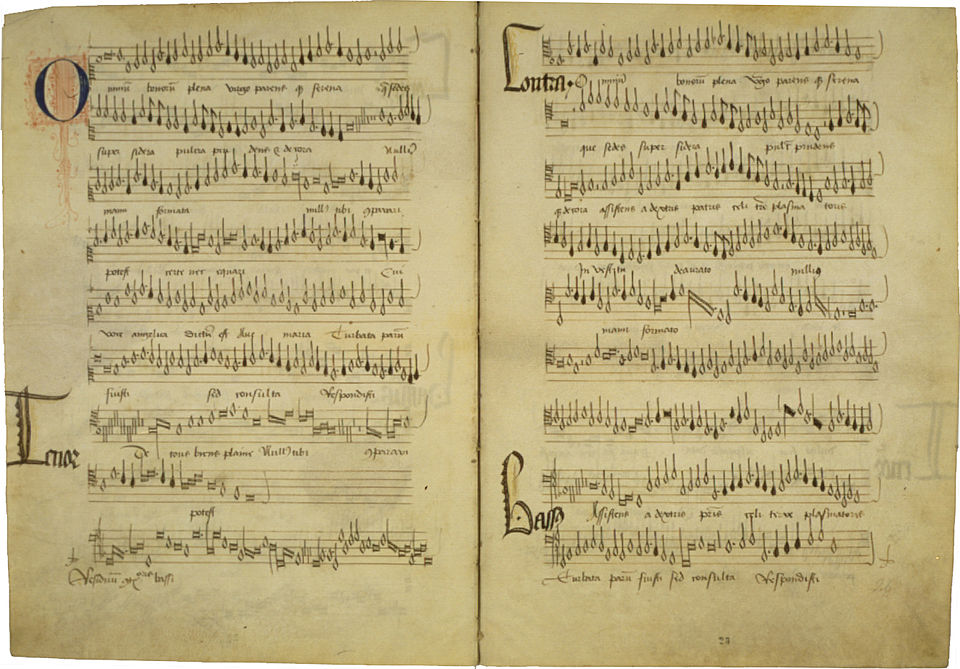 O mnium bonoru plena virgo parens q serena q sedes
super sidera pulcra pru dens et decora Null
mami formata null tibi parari
potest certe nec equari Cui
voce angelica dictu est Ave maria Turbata paru
fuisti sed consulta Respondisti
Tenor
De tous biens plaine Null tibi parari
potest
Residuum bassi
Contra O mniu bonoru plena virgo parens q serena
que sedes super sidera pulcr prudens
q decora assistens a dextris patris celi terre plasma toris
In vestitu deaurato
mami formato
Bassus
Assistens a dextris pris celi terre plasmatoris
Turbata paru fuisti sed consulta Respondisti
26
28